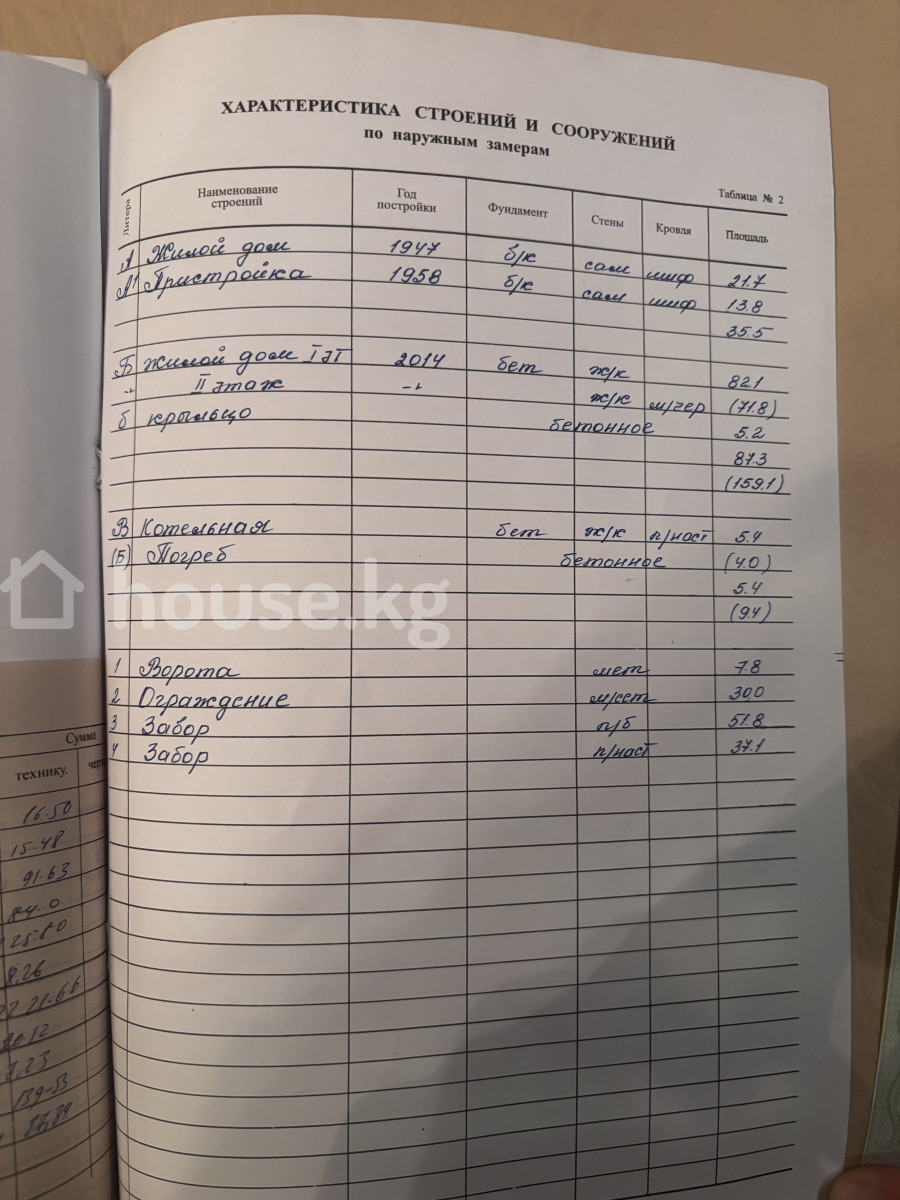 ХАРАКТЕРИСТИКА СТРОЕНИЙ И СООРУЖЕНИЙ
по наружным замерам
Таблица № 2
Литера Наименование строений Год постройки Фундамент Стены Кровля Площадь
А Жилой дом 1947 б/к сам шиф 21.7
А1 Пристройка 1958 б/к сам шиф 13.8
35.5
Б жилой дом I эт 2014 бет ж/к 82.1
-"- II этаж -"- ж/к м/чер (71.8)
б крыльцо бетонное 5.2
87.3
(159.1)
В Котельная бет ж/к п/наст 5.4
(Б) Погреб бетонное (4.0)
5.4
(9.4)
1 Ворота мет 7.8
2 Ограждение м/сет 30.0
3 Забор п/б 51.8
4 Забор п/наст 37.1
house.kg
Сумма
технику.
16-50
15-48
91-63
84-0
25-80
8.26
21-66
20.12
7,23
139-53
87,84